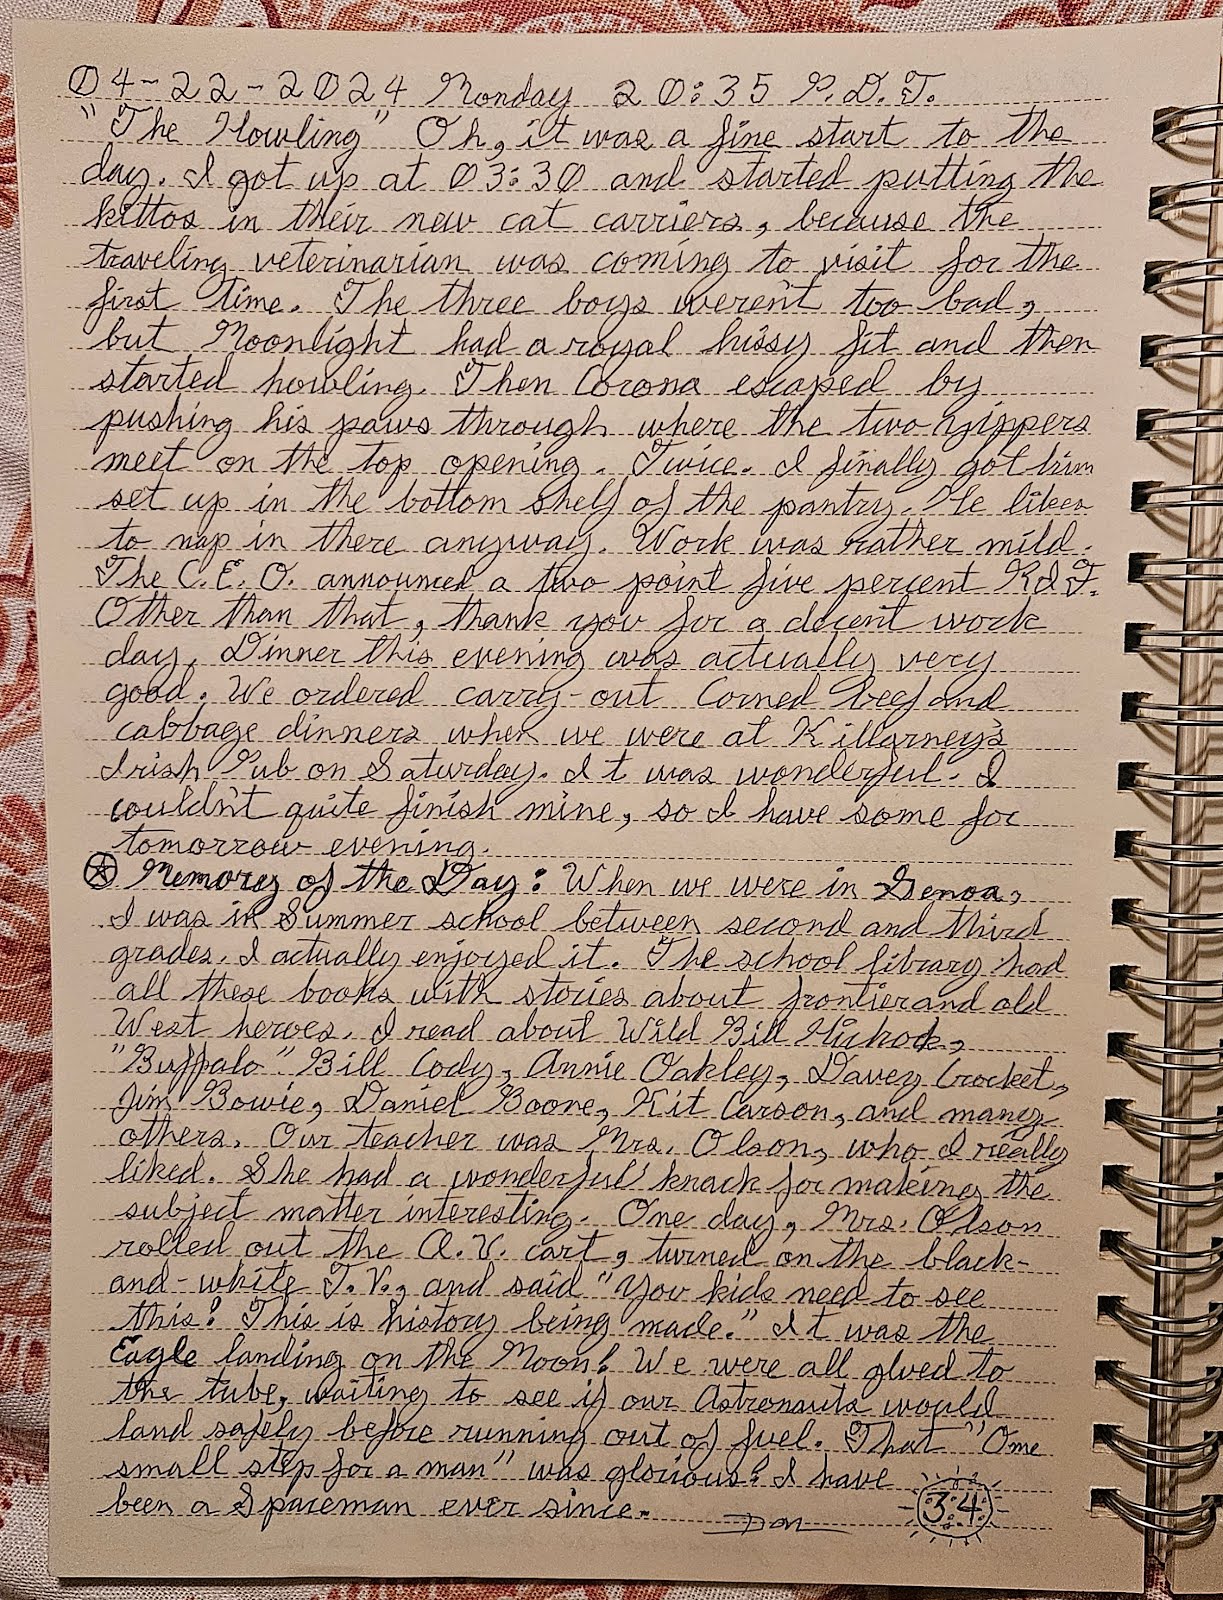 04-22-2024 Monday 20:35 P.D.T.
"The Howling" Oh, it was a fine start to the
day. I got up at 03:30 and started putting the
kittos in their new cat carriers, because the
traveling veterinarian was coming to visit for the
first time. The three boys weren't too bad,
but Moonlight had a royal hissy fit and then
started howling. Then Corona escaped by
pushing his paws through where the two zippers
meet on the top opening. Twice. I finally got him
set up in the bottom shelf of the pantry. He likes
to nap in there anyway. Work was rather mild.
The C.E.O. announced a two point five percent R.I.F.
Other than that, thank you for a decent work
day. Dinner this evening was actually very
good. We ordered carry-out Corned beef and
cabbage dinners when we were at Killarney's
Irish Pub on Saturday. It was wonderful. I
couldn't quite finish mine, so I have some for
tomorrow evening.
Memory of the Day: When we were in Genoa,
I was in Summer school between second and third
grades. I actually enjoyed it. The school library had
all these books with stories about frontier and old
West heroes. I read about Wild Bill Hickock,
"Buffalo" Bill Cody, Annie Oakley, Davey Crocket,
Jim Bowie, Daniel Boone, Kit Carson, and many
others. Our teacher was Mrs. Olson, who I really
liked. She had a wonderful knack for making the
subject matter interesting. One day, Mrs. Olson
rolled out the A.V. cart, turned on the black-
and-white T.V., and said "You kids need to see
this! This is history being made." It was the
Eagle landing on the Moon! We were all glued to
the tube, waiting to see if our Astronauts would
land safely before running out of fuel. That "One
small step for a man" was glorious! I have
been a Spaceman ever since. Don :3:4: